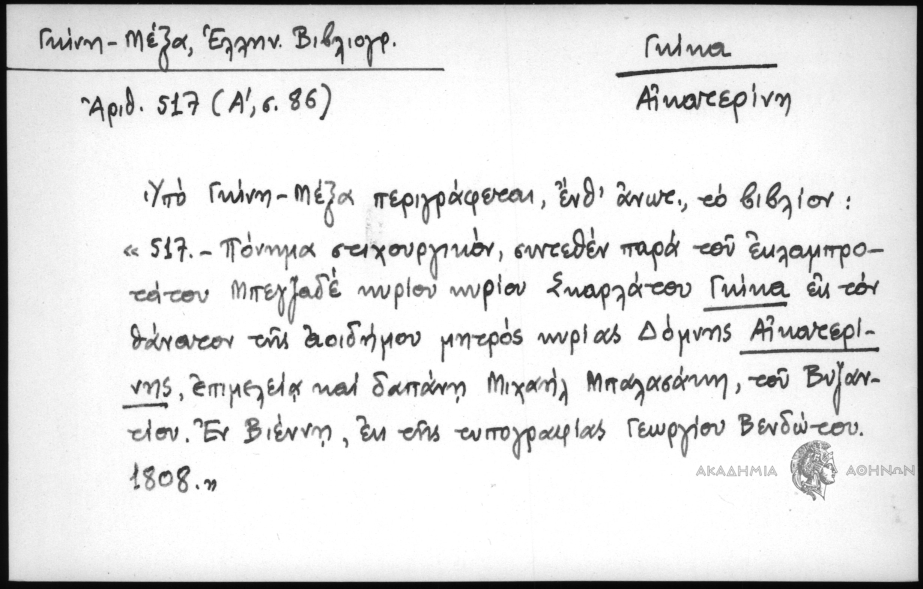 Γκίνη-Μέζα, Ἑλλην. Βιβλιογρ.
Ἀριθ. 517 (Α΄, σ. 86)
Γκίκα
Αἰκατερίνη
Ὑπό Γκίνη-Μέζα περιγράφεται, ἔνθ' ἄνωτ., τό βιβλίον:
« 517.- Πόνημα στιχουργικόν, συντεθέν παρά τοῦ ἐκλαμπρο-
τάτου Μπεγζαδέ κυρίου κυρίου Σκαρλάτου Γκίκα εἰς τόν
θάνατον τῆς ἀοιδήμου μητρός κυρίας Δόμνης Αἰκατερί-
νης, ἐπιμελείᾳ καί δαπάνῃ Μιχαήλ Μπαλασάκη, τοῦ Βυζαν-
τίου. Ἐν Βιέννῃ, ἐκ τῆς τυπογραφίας Γεωργίου Βενδώτου.
1808.»
ΑΚΑΔΗΜΙΑ ΑΘΗΝΩΝ